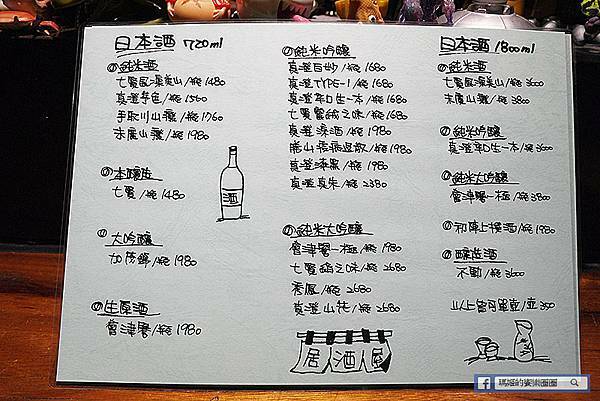 日本酒 720ml
純米酒
七賢風凜美山/瓶 1480
真澄茅色/瓶 1560
手取川山灘/瓶 1760
末廣山灘/瓶 1980
本釀造
七賢/瓶 1480
大吟釀
加茂錦/瓶 1980
生原酒
會津譽/瓶 1980
酒
純米吟釀
真澄白妙/瓶 1680
真澄TYPE-1/瓶 1680
真澄年D生一本/瓶 1680
七賢絹之味/瓶 1680
真澄漆酒/瓶 1980
真澄漆黑/瓶 1980
真澄真朱/瓶 2380
純米大吟釀
會津譽一極/瓶 1980
七賢絹之味/瓶 2680
秀鳳/瓶 2680
真澄山花/瓶 2680
居酒屋
日本酒 1800ml
純米酒
七賢風凜美山/瓶 3000
末廣山灘/瓶 3800
純米吟釀
真澄年D生一本/瓶 3600
純米大吟釀
會津譽一極/瓶 3800
初陣上撰酒/瓶 1980
釀造酒
不動/瓶 3600
以上皆可單壺/壺 350